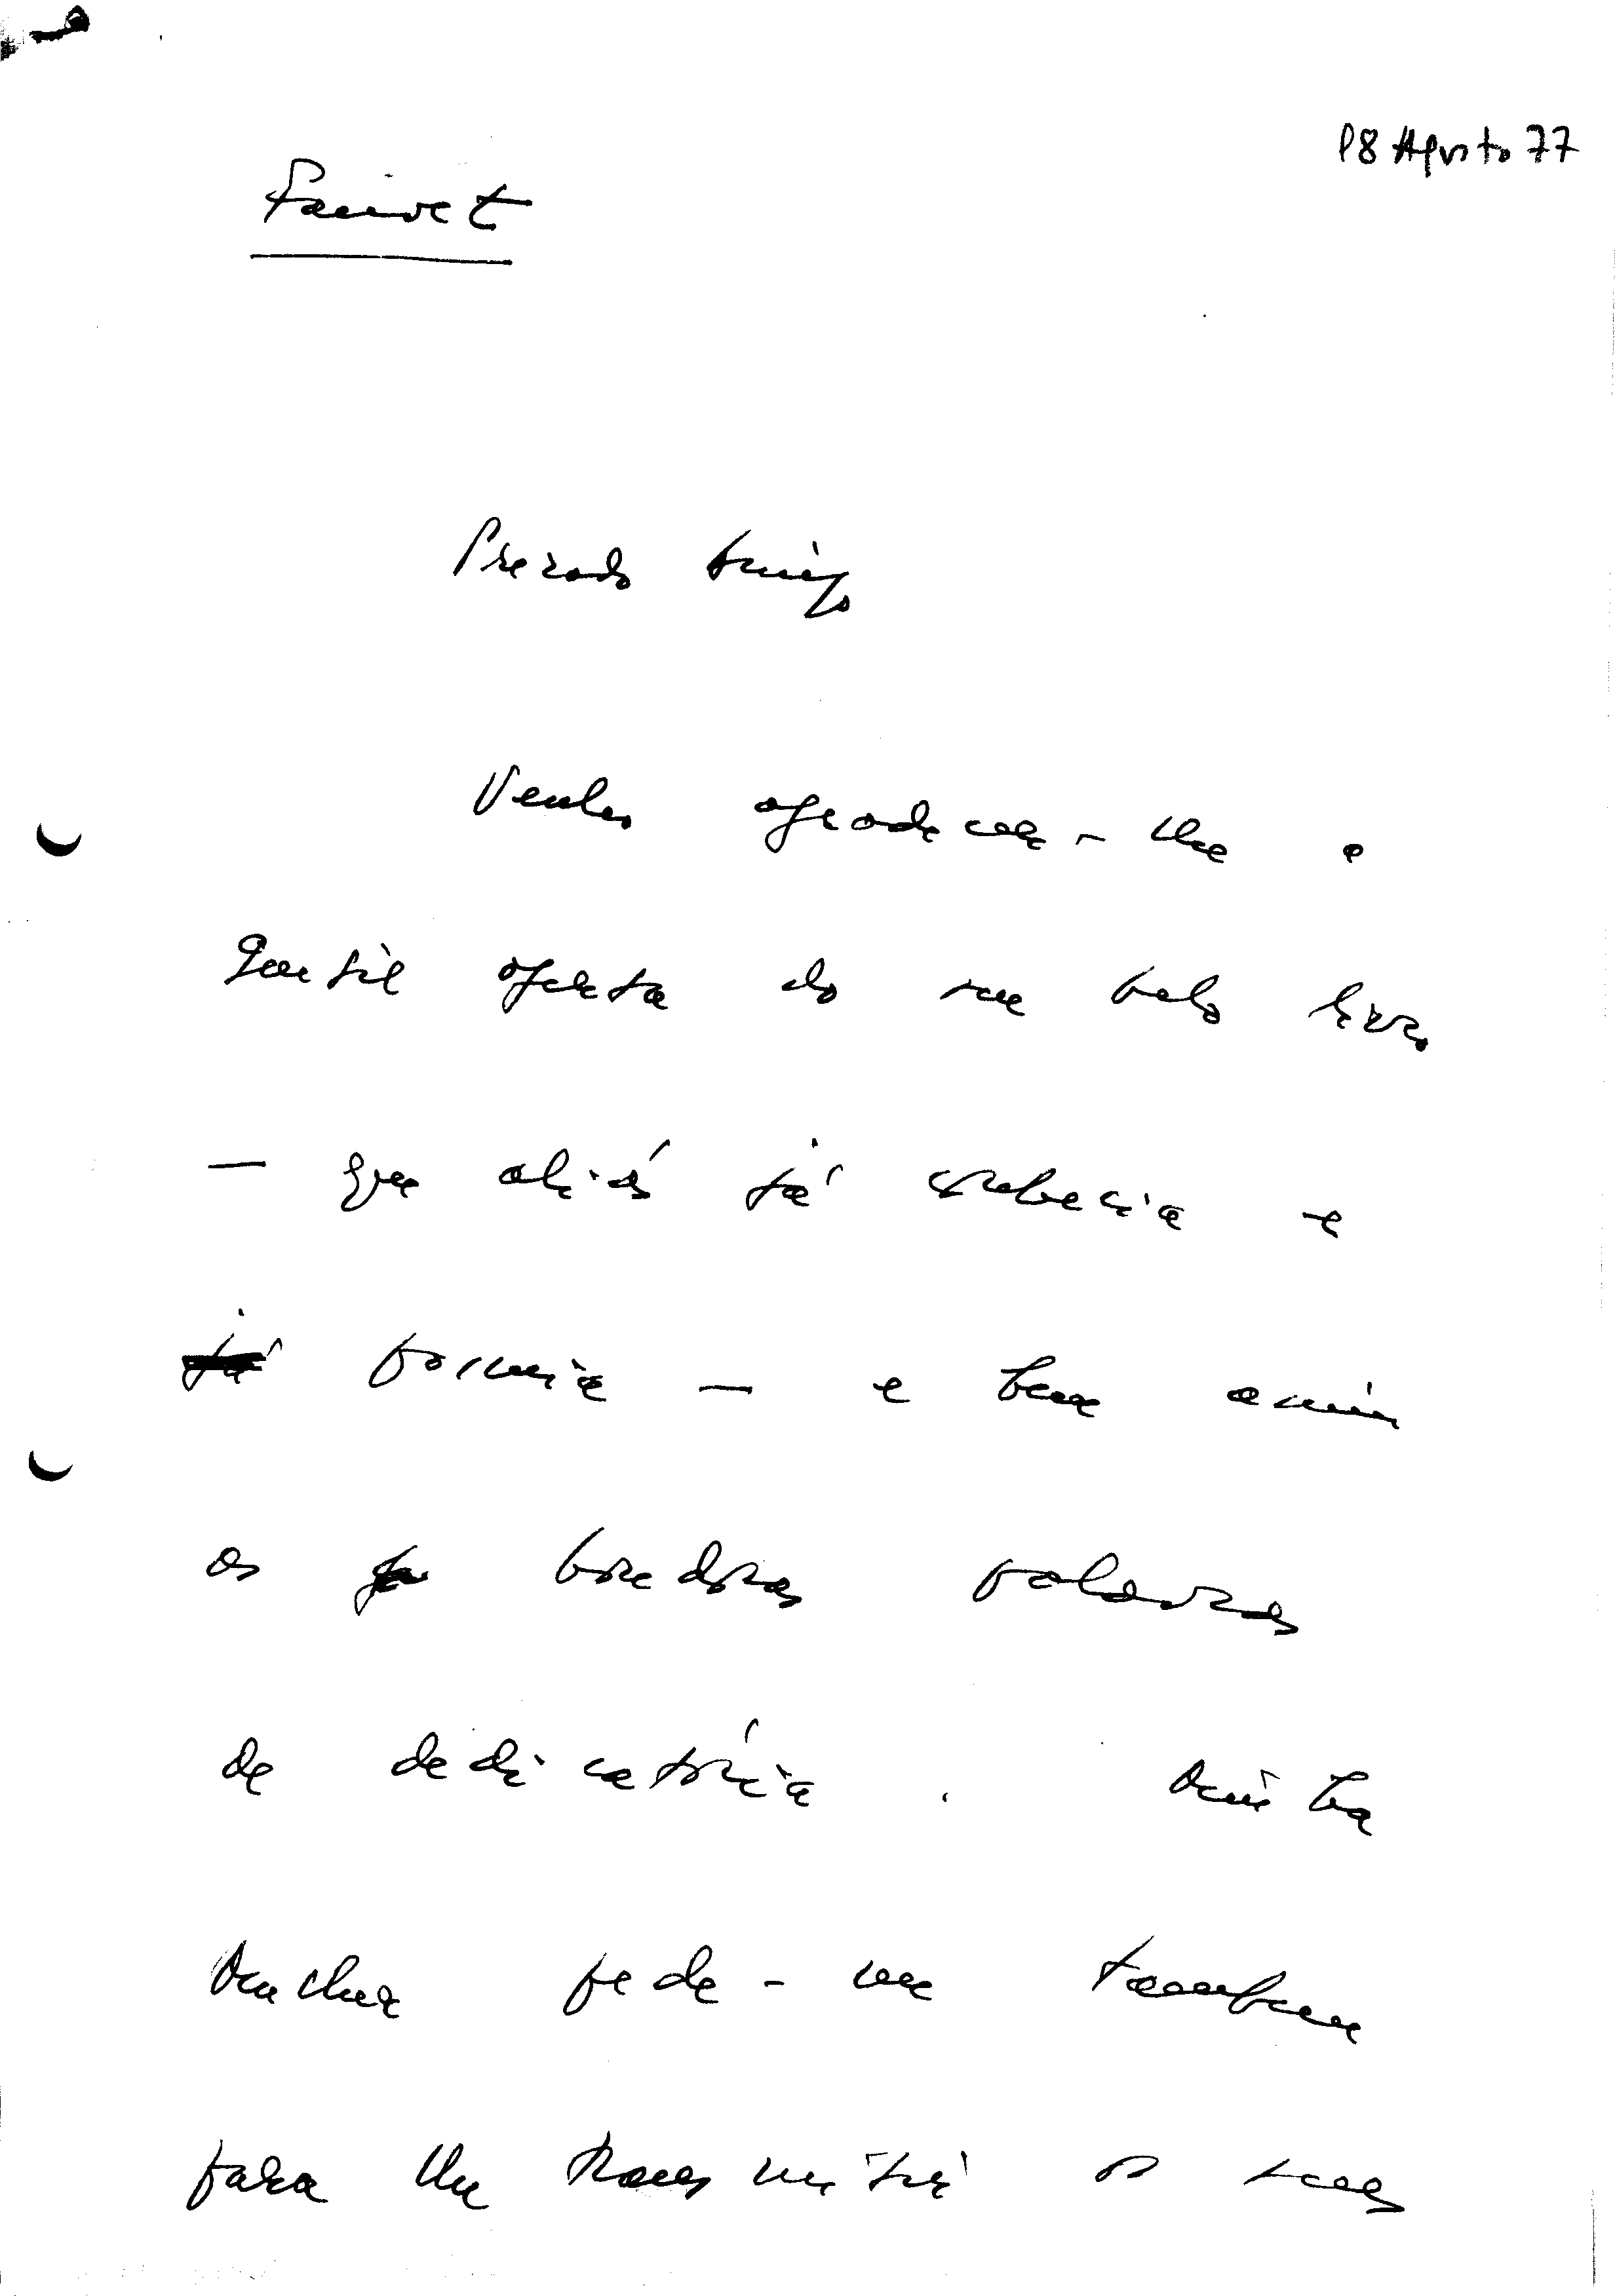 18 Agosto 77
Fauvet
Prezado Amigo
Venho agradecer-lhe a
gentil oferta do seu belo livro
— que aliás já conhecia e
já possuia — e bem assim
as bondosas palavras
da dedicatória. Minha
mulher pede-me tambem
para lhe transmitir os seus